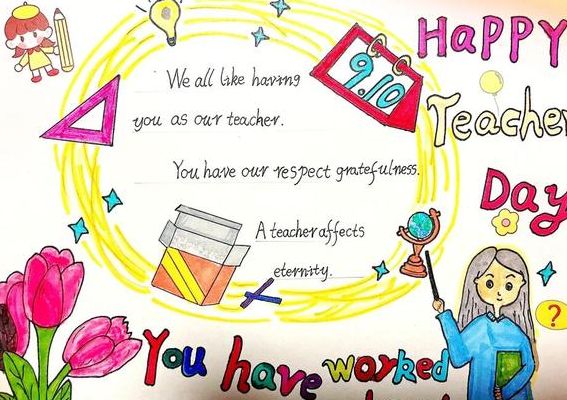 HaPPY
Teacher
Day
9.10
We all like having
you as our teacher.
You have our respect gratefulness.
A teacher affects
eternity.
?
You have worked